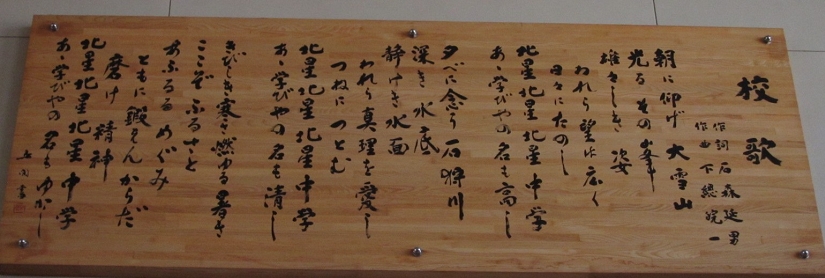 校歌
作詞 石森延男
作曲 下總皖一
朝に仰げ 大雪山
光る その峯
雄々しき 姿
われら 望は 広く
日々に たのし
北星 北星 北星 中学
あゝ学びやの 名も 高し
夕べに 念う 石狩川
深き 水底
静けき 水面
われら 真理を 愛し
つねに つとむ
北星 北星 北星 中学
あゝ学びやの 名も 清し
きびしき 寒さ 燃ゆる 暑さ
ここぞ ふるさと
あふるる めぐみ
ともに 鍛えん からだ
磨け 精神
北星 北星 北星 中学
あゝ学びやの 名も ゆかし